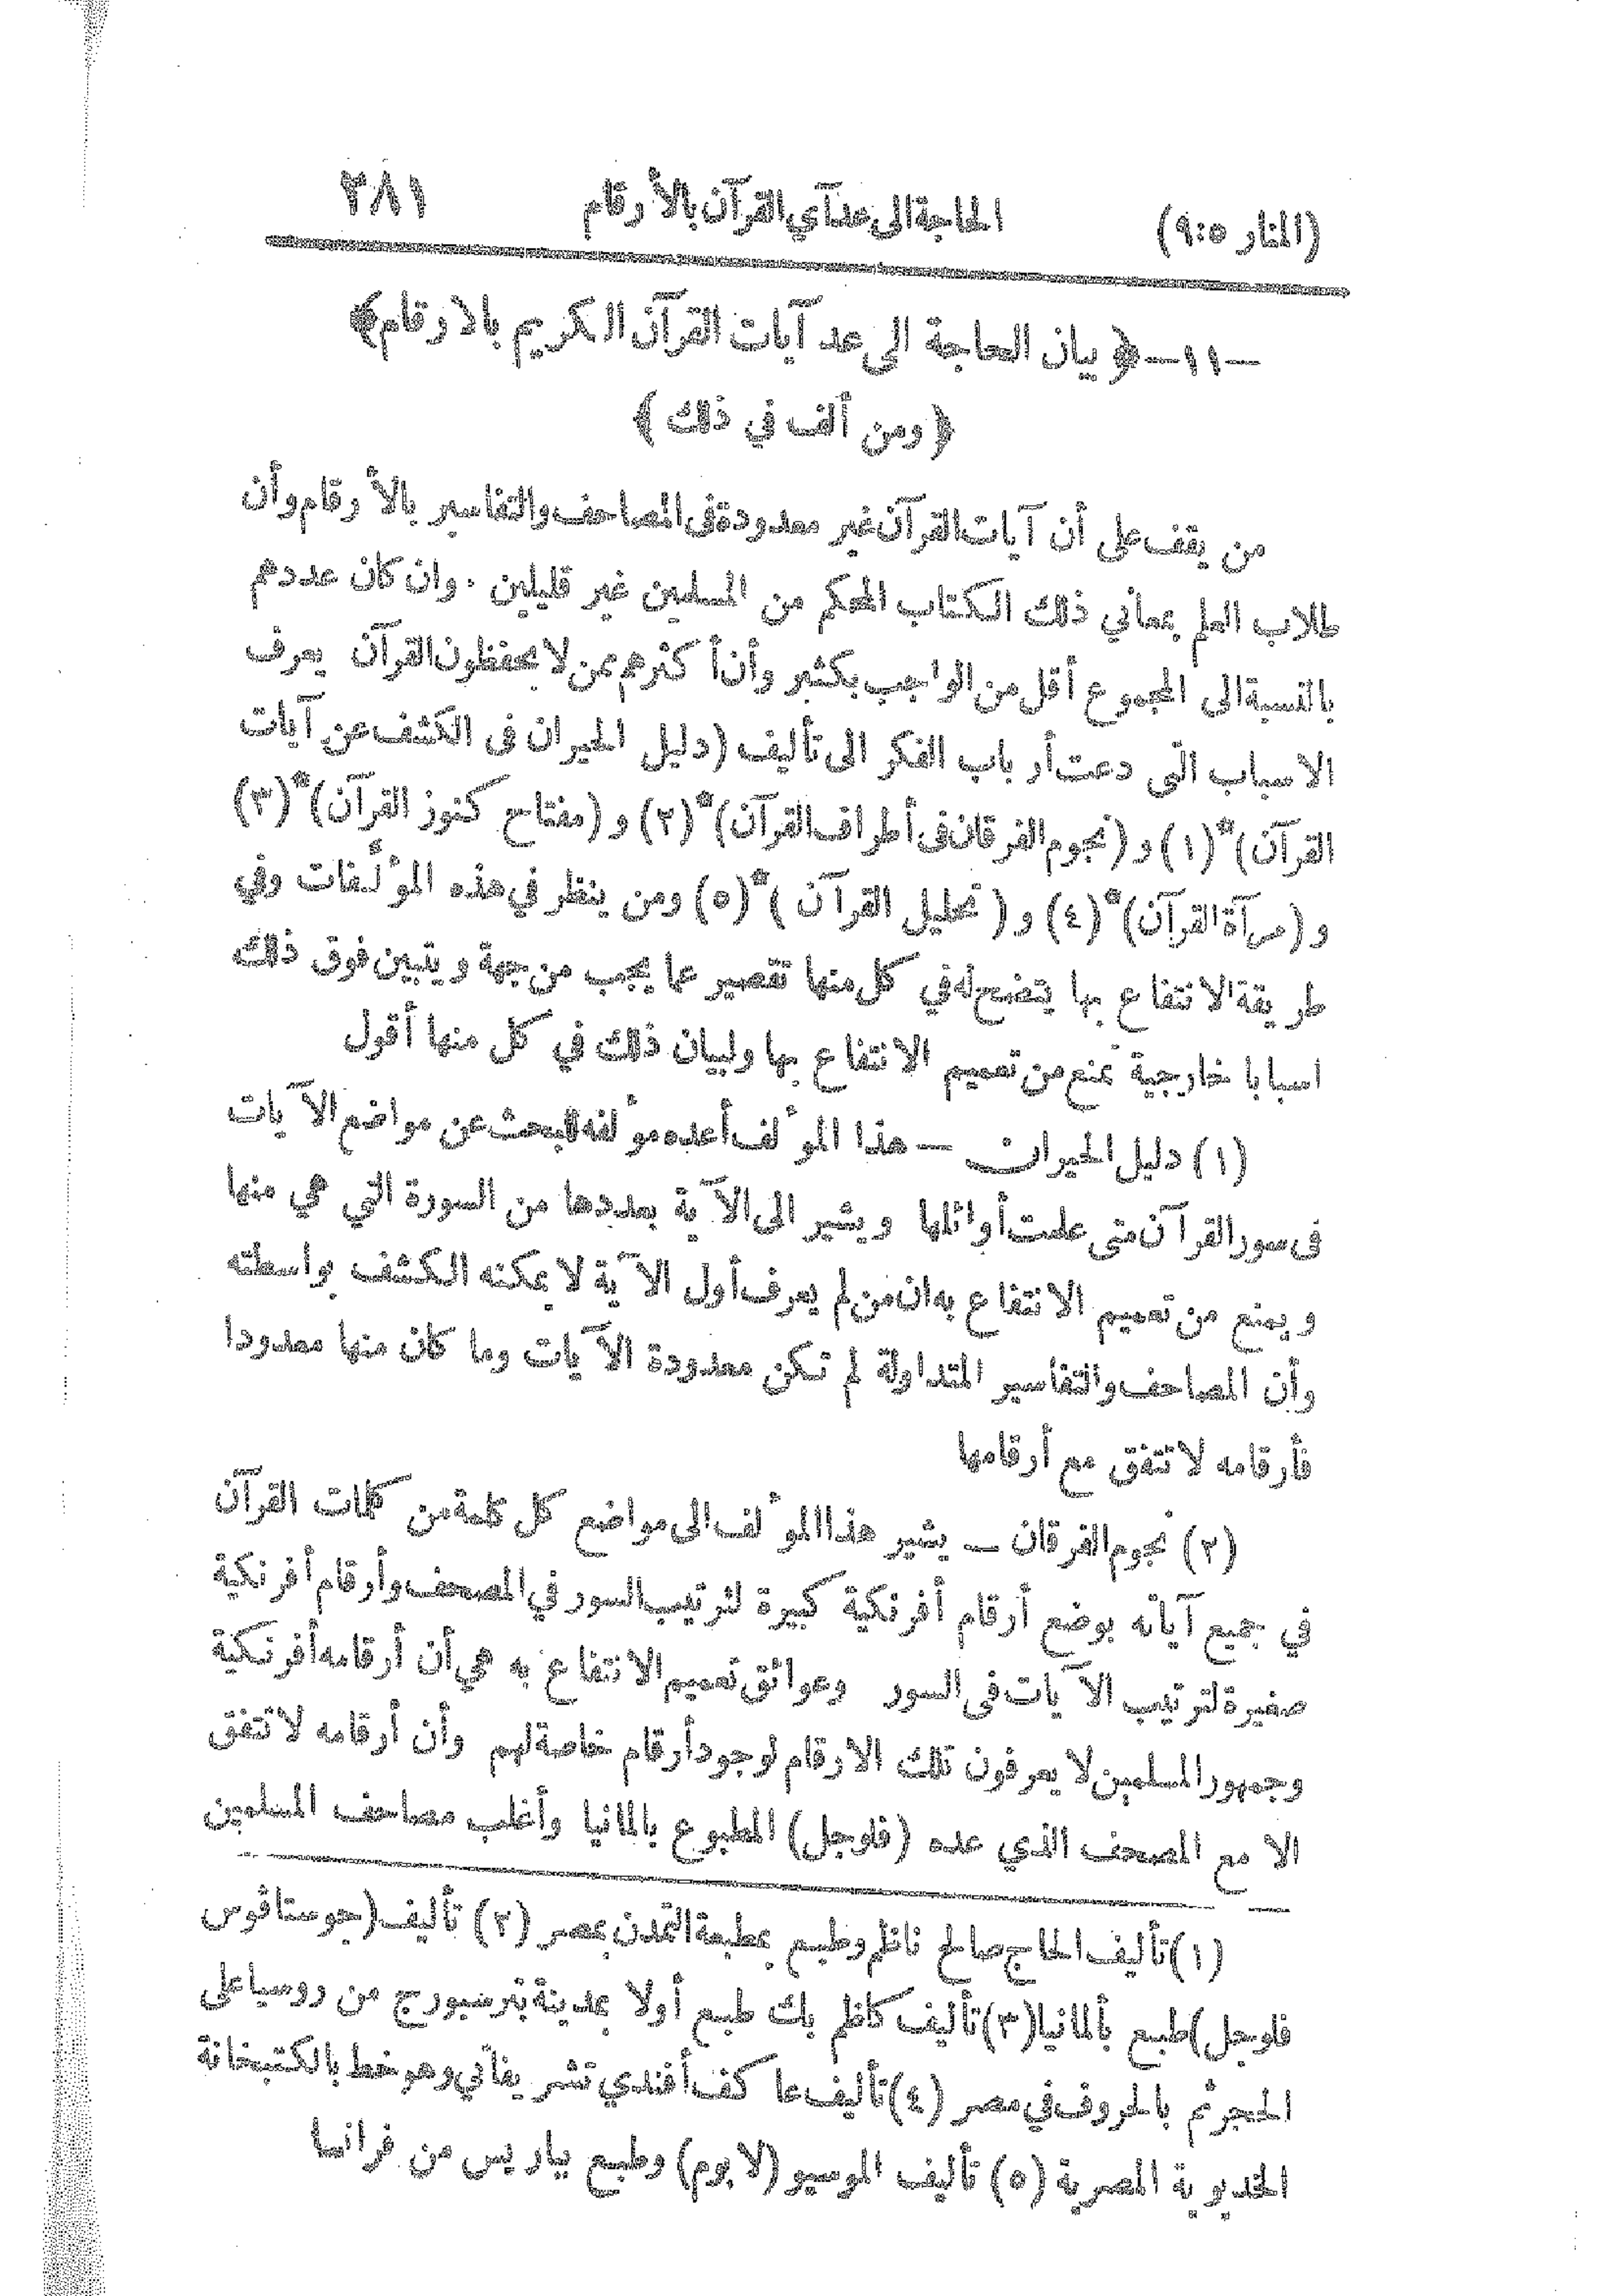 (المنار ٩:٥) الحاجة الى عد آي القرآن بالأرقام ٣٨١
—١١—﴿ بيان الحاجة الى عد آيات القرآن الكريم بالارقام﴾
﴿ ومن ألف في ذلك ﴾
من يقف على أن آيات القرآن غير معدودة فى المصاحف والتفاسير بالأرقام وأن
طلاب العلم بمعاني ذلك الكتاب المحكم من المسلمين غير قليلين . وان كان عددهم
بالنسبة الى المجموع أقل من الواجب بكثير وأن أكثرهم ممن لا يحفظون القرآن يعرف
الاسباب التى دعت أرباب الفكر الى تأليف (دليل الحيران فى الكشف عن آيات
القرآن)* (١) و (نجوم الفرقان فى أطراف القرآن)* (٢) و (مفتاح كنوز القرآن)* (٣)
و (مرآة القرآن)* (٤) و ( تحليل القرآن )* (٥) ومن ينظر في هذه المؤلَّفات وفي
طريقة الانتفاع بها يتضح له في كل منها تقصير عما يجب من جهة ويتبين فوق ذلك
اسبابا خارجية تمنع من تعميم الانتفاع بها ولبيان ذلك في كل منها أقول
(١) دليل الحيران — هذا المؤلف أعده مؤلفه للبحث عن مواضع الآيات
فى سور القرآن متى علمت أوائلها ويشير الى الآية بعددها من السورة التي هي منها
ويمنع من تعميم الانتفاع به ان من لم يعرف أول الآية لا يمكنه الكشف بواسطته
وأن المصاحف والتفاسير المتداولة لم تكن معدودة الآيات وما كان منها معدودا
فأرقامه لا تتفق مع أرقامها
(٢) نجوم الفرقان — يشير هذا المؤلف الى مواضع كل كلمة من كلمات القرآن
في جميع آياته بوضع أرقام أفرنكية كبيرة لترتيب السور في المصحف وأرقام أفرنكية
صغيرة لترتيب الآيات فى السور وعوائق تعميم الانتفاع به هي أن أرقامه أفرنكية
وجمهور المسلمين لا يعرفون تلك الارقام لوجود أرقام خاصة لهم وأن أرقامه لا تتفق
الا مع المصحف الذي عده (فلوجل) المطبوع بالمانيا وأغلب مصاحف المسلمين
(١) تأليف الحاج صالح ناظم وطبع بمطبعة التمدن بمصر (٢) تأليف (جوستاڤوس
فلوجل) طبع بألمانيا (٣) تأليف كاظم بك طبع أولا بمدينة بترسبورج من روسيا على
الحجر ثم بالحروف في مصر (٤) تأليف عاكف أفندي تشريفاتي وهو خط بالكتبخانة
الخديوية المصرية (٥) تأليف الموسيو (لابوم) وطبع بباريس من فرانسا